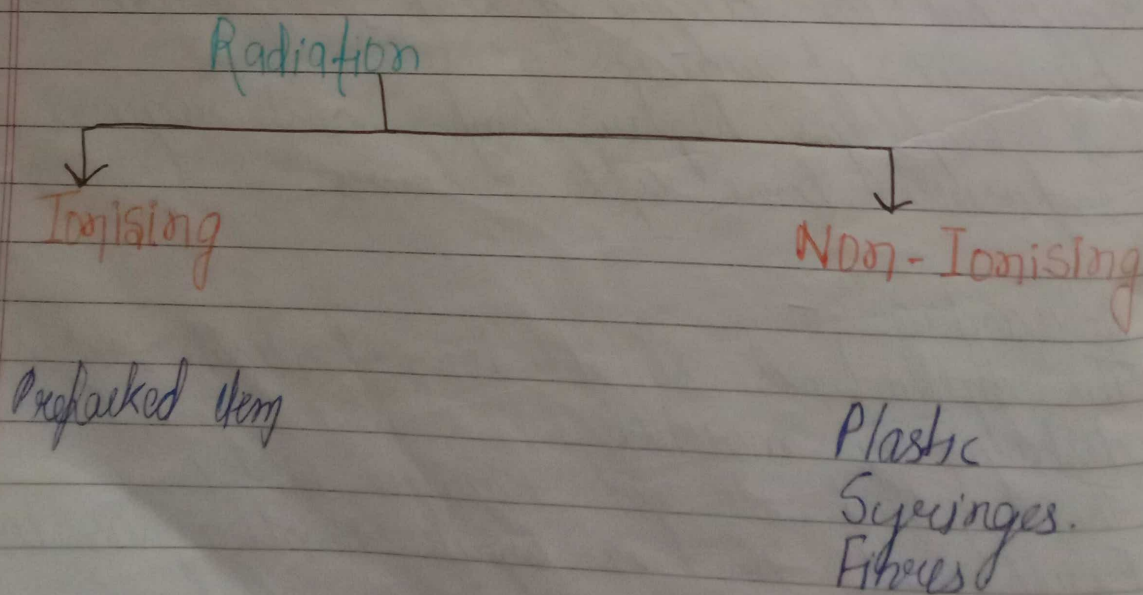 Radiation
Ionising
Non-Ionising
Prepacked item
Plastic
Syringes.
Fibres